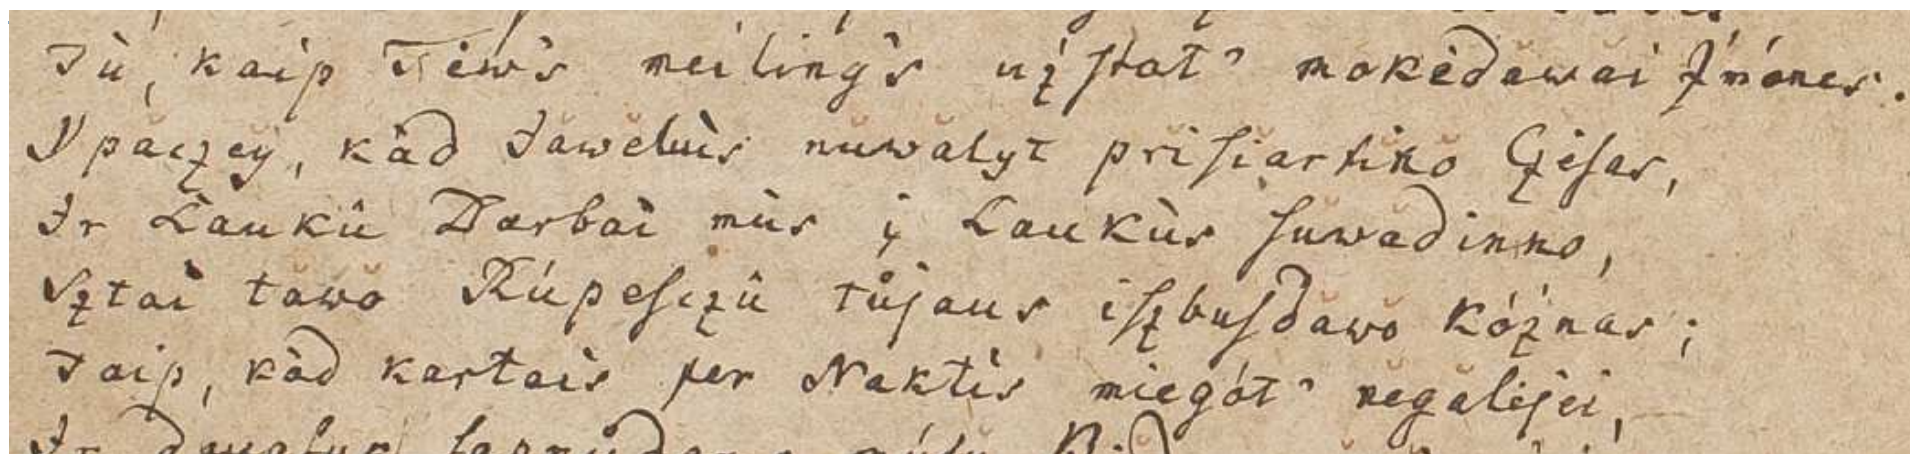 Tù, kaip Tėws meilings użstot' mokėdawai Żmónes.
Ypaczey, kàd Jawelùs nuwalyt prisiartino Czėsas,
Ir Laukû Darbai mùs į Laukùs suwadinno,
Sztai tawo Rúpesczû tůjaus iszbusdawo kóżnas;
Taip, kàd kartais per Naktis miegót' negalėjei,
Ir